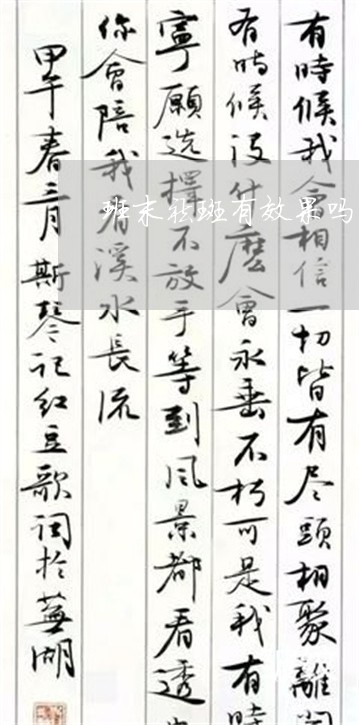 有時候我會相信一切皆有尽頭相聚離開
有時候沒什麼會永垂不朽可是我有時
寧願选擇不放手等到风景都看透
你會陪我看溪水長流
甲午春三月斯琴记红豆歌词於蕪湖
班末祛斑有效果吗